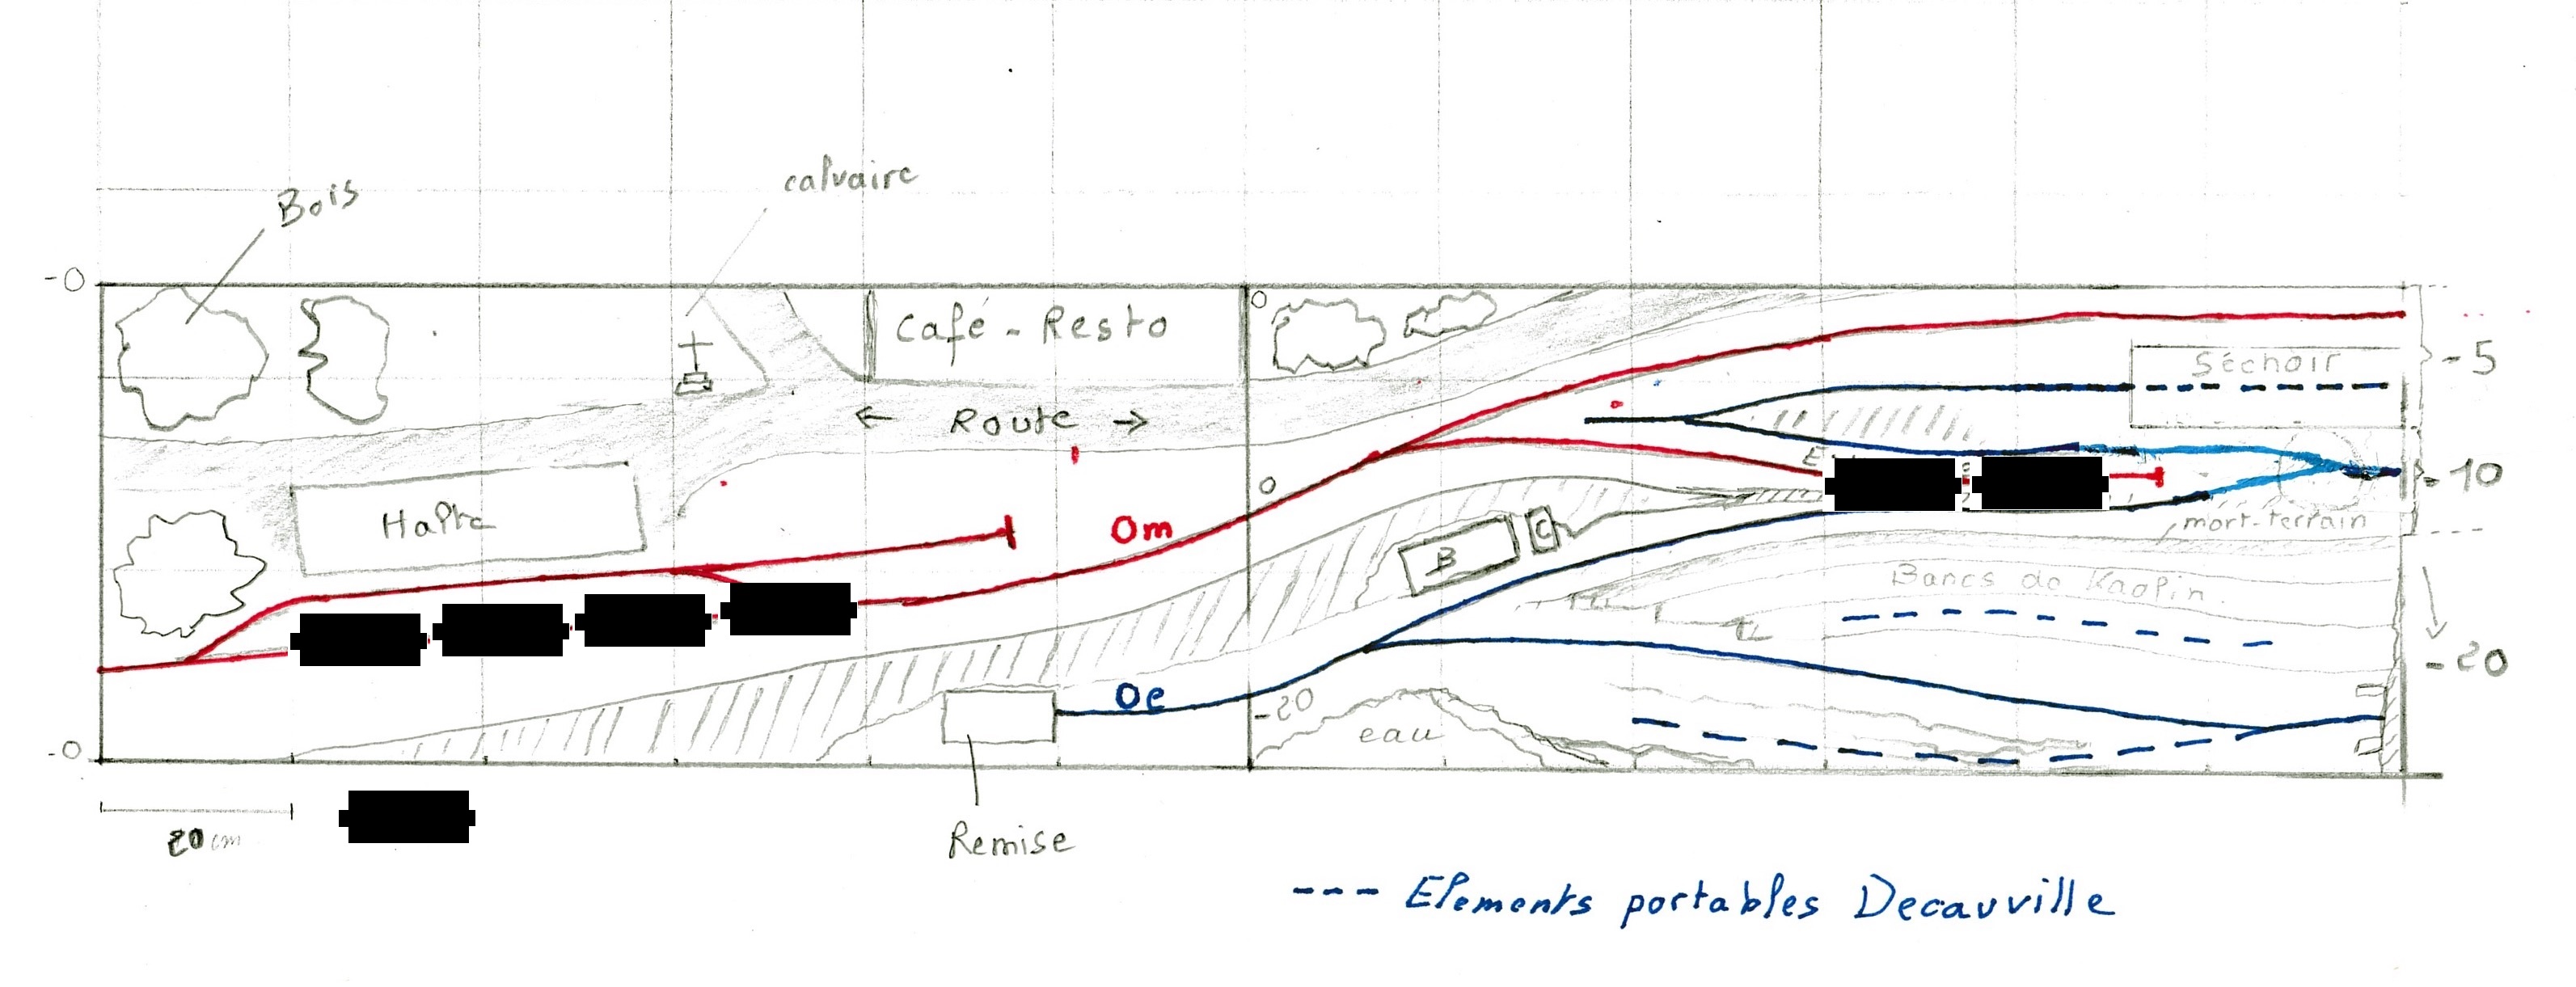 calvaire
Bois
-0
0
café - Resto
- 5
Séchoir
← Route →
0
- 10
Halte
Om
mort-terrain
B
C
Bancs de Kaolin
- 20
Oe
-20
eau
-0
20 cm
Remise
--- Elements portables Decauville